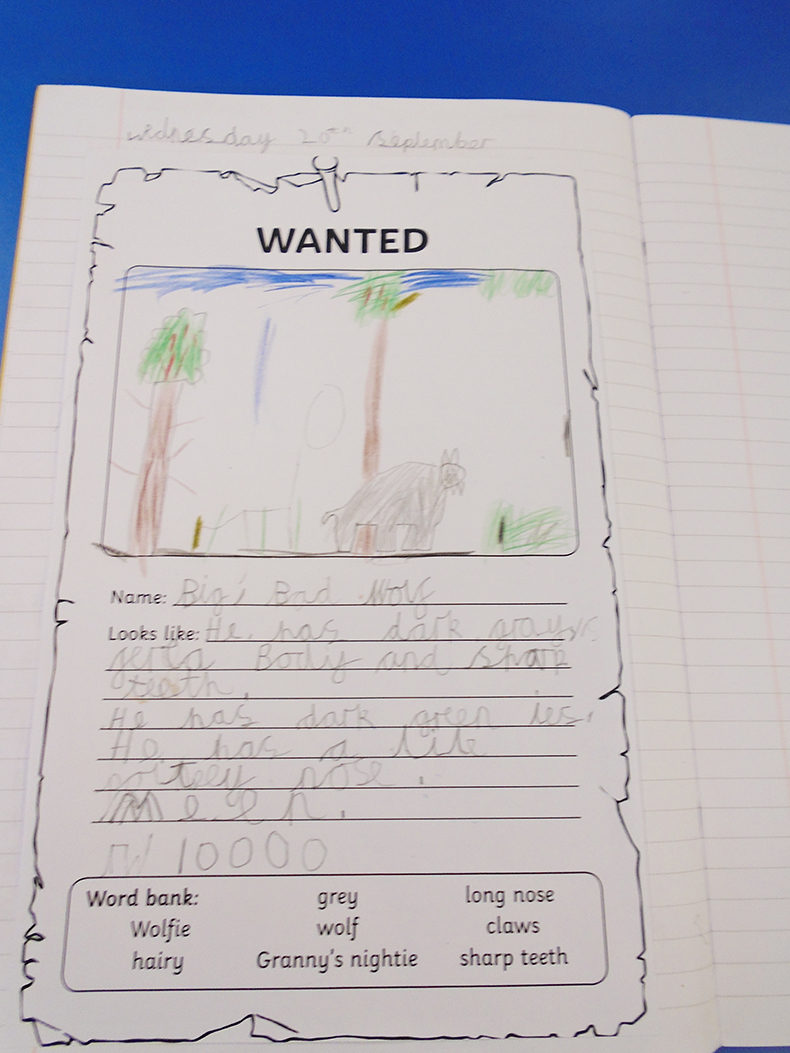 wednesday 20th September
WANTED
Name: Big Bad Wolf
Looks like: He has dark
Body and sharp
teeth.
He has dark green ies.
He has a
nose.
10000
Word bank: grey long nose
Wolfie wolf claws
hairy Granny's nightie sharp teeth